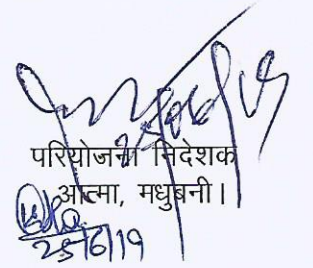 परियोजना निदेशक
आत्मा, मधुबनी।
25/6/19